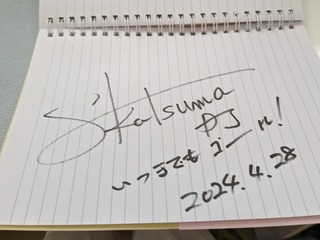 S'Katsuma
DJ
いつまでもゴール!
2024.4.28